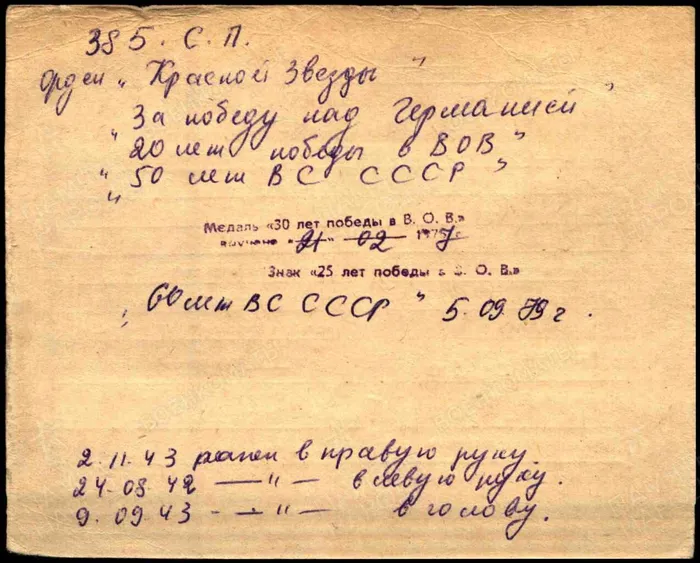 385. С. П.
Орден „Красной Звезды"
„За победу над Германией"
„20 лет победы в ВОВ"
„50 лет ВС СССР"
„
Медаль «30 лет победы в В. О. В.»
вручена «21» 02 1977 г
Знак «25 лет победы в В. О. В.»
„60 лет ВС СССР" 5.09.79 г.
2.11.43 ранен в правую руку.
24.08.42 —"— в левую руку.
9.09.43 - —"— в голову.